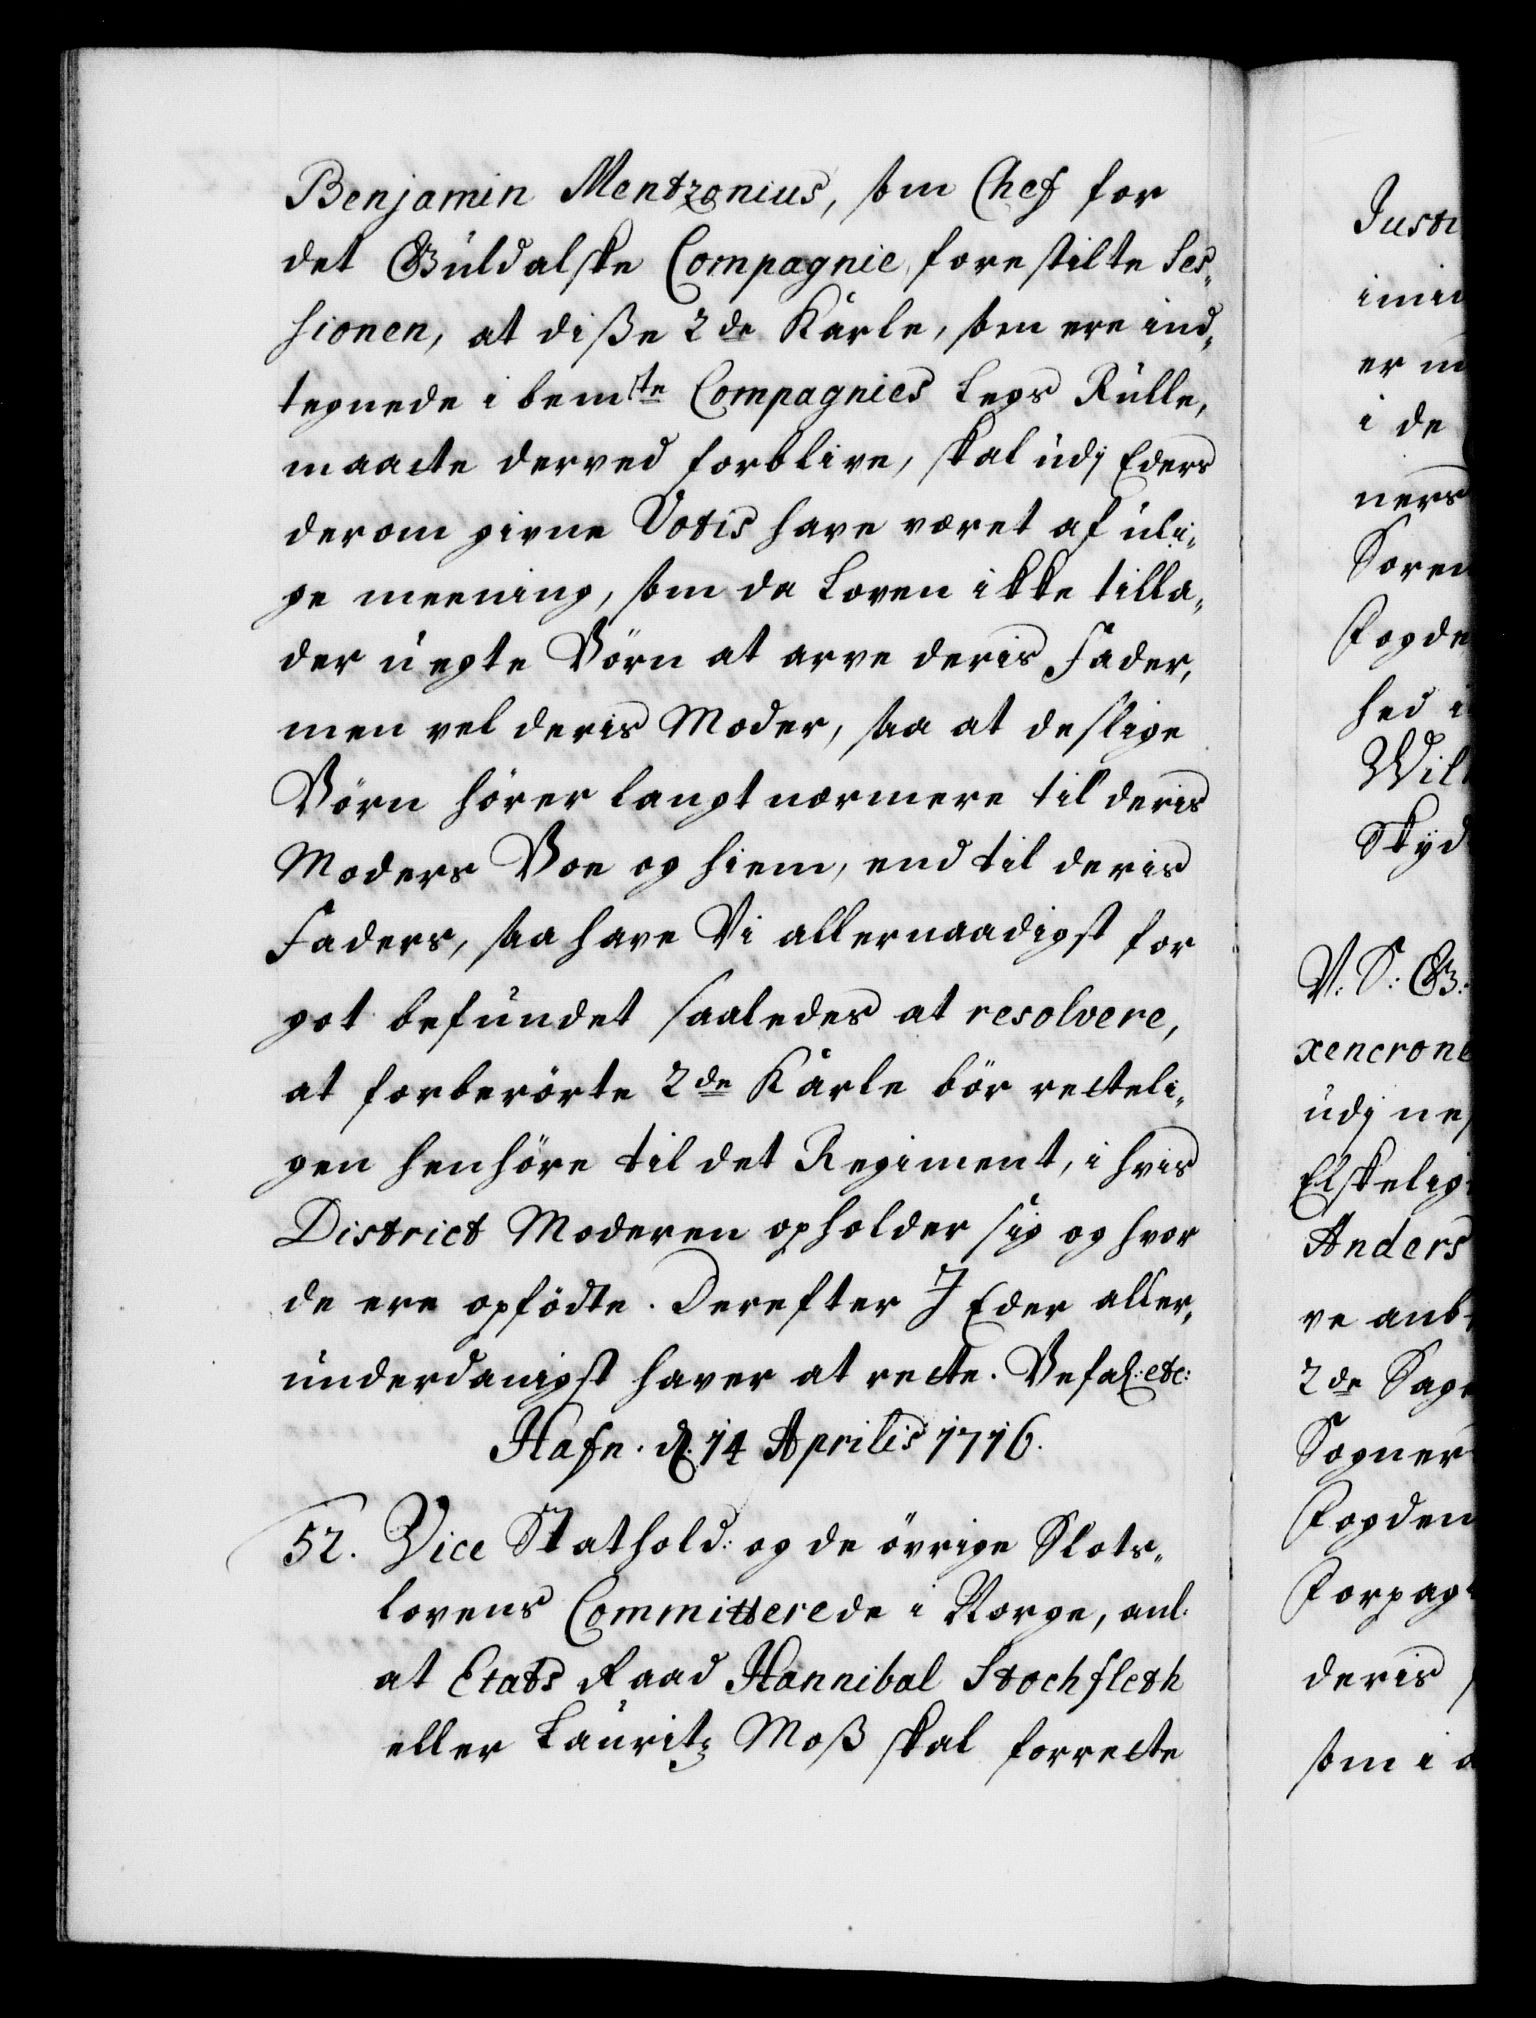 Benjamin Mentzonius, som Chef for
det Guldalske Compagnie, forestilte Ses-
sionen, at disse 2de Karle, som ere ind-
tegnede i bemte Compagnies Legs Rulle,
maatte derved forblive, skal udj Eders
derom givne Votis have været af uli-
ge meening, som da Loven ikke tilla-
der uegte Börn at arve deris Fader,
men vel deris Moder, saa at deslige
Börn hörer langt nærmere til deris
Moders Boe og hiem, end til deris
Faders, saa have Vi allernaadigst for
got befundet saaledes at resolvere,
at forberörte 2de Karle bör retteli-
gen henhöre til det Regiment, i hvis
District Moderen opholder sig og hvor
de ere opfödte. Derefter I Eder aller-
underdanigst haver at rette. Befal: etc:
Hafn. d. 14 Aprilis 1716.
52. Vice Stathold: og de övrige Slots-
lovens Committerede i Norge, anl:
at Etats Raad Hannibal Stochfleth
eller Lauritz Moss skal forrette
Justi
er
i de
ners
Sören
Fogde
hed i
Wil
Skyd
V: S: G:
xencrone
udj ne
Elskelig
Anders
ve anb
2de Sage
Sogner
Fogden
Forpagt
deris
som i